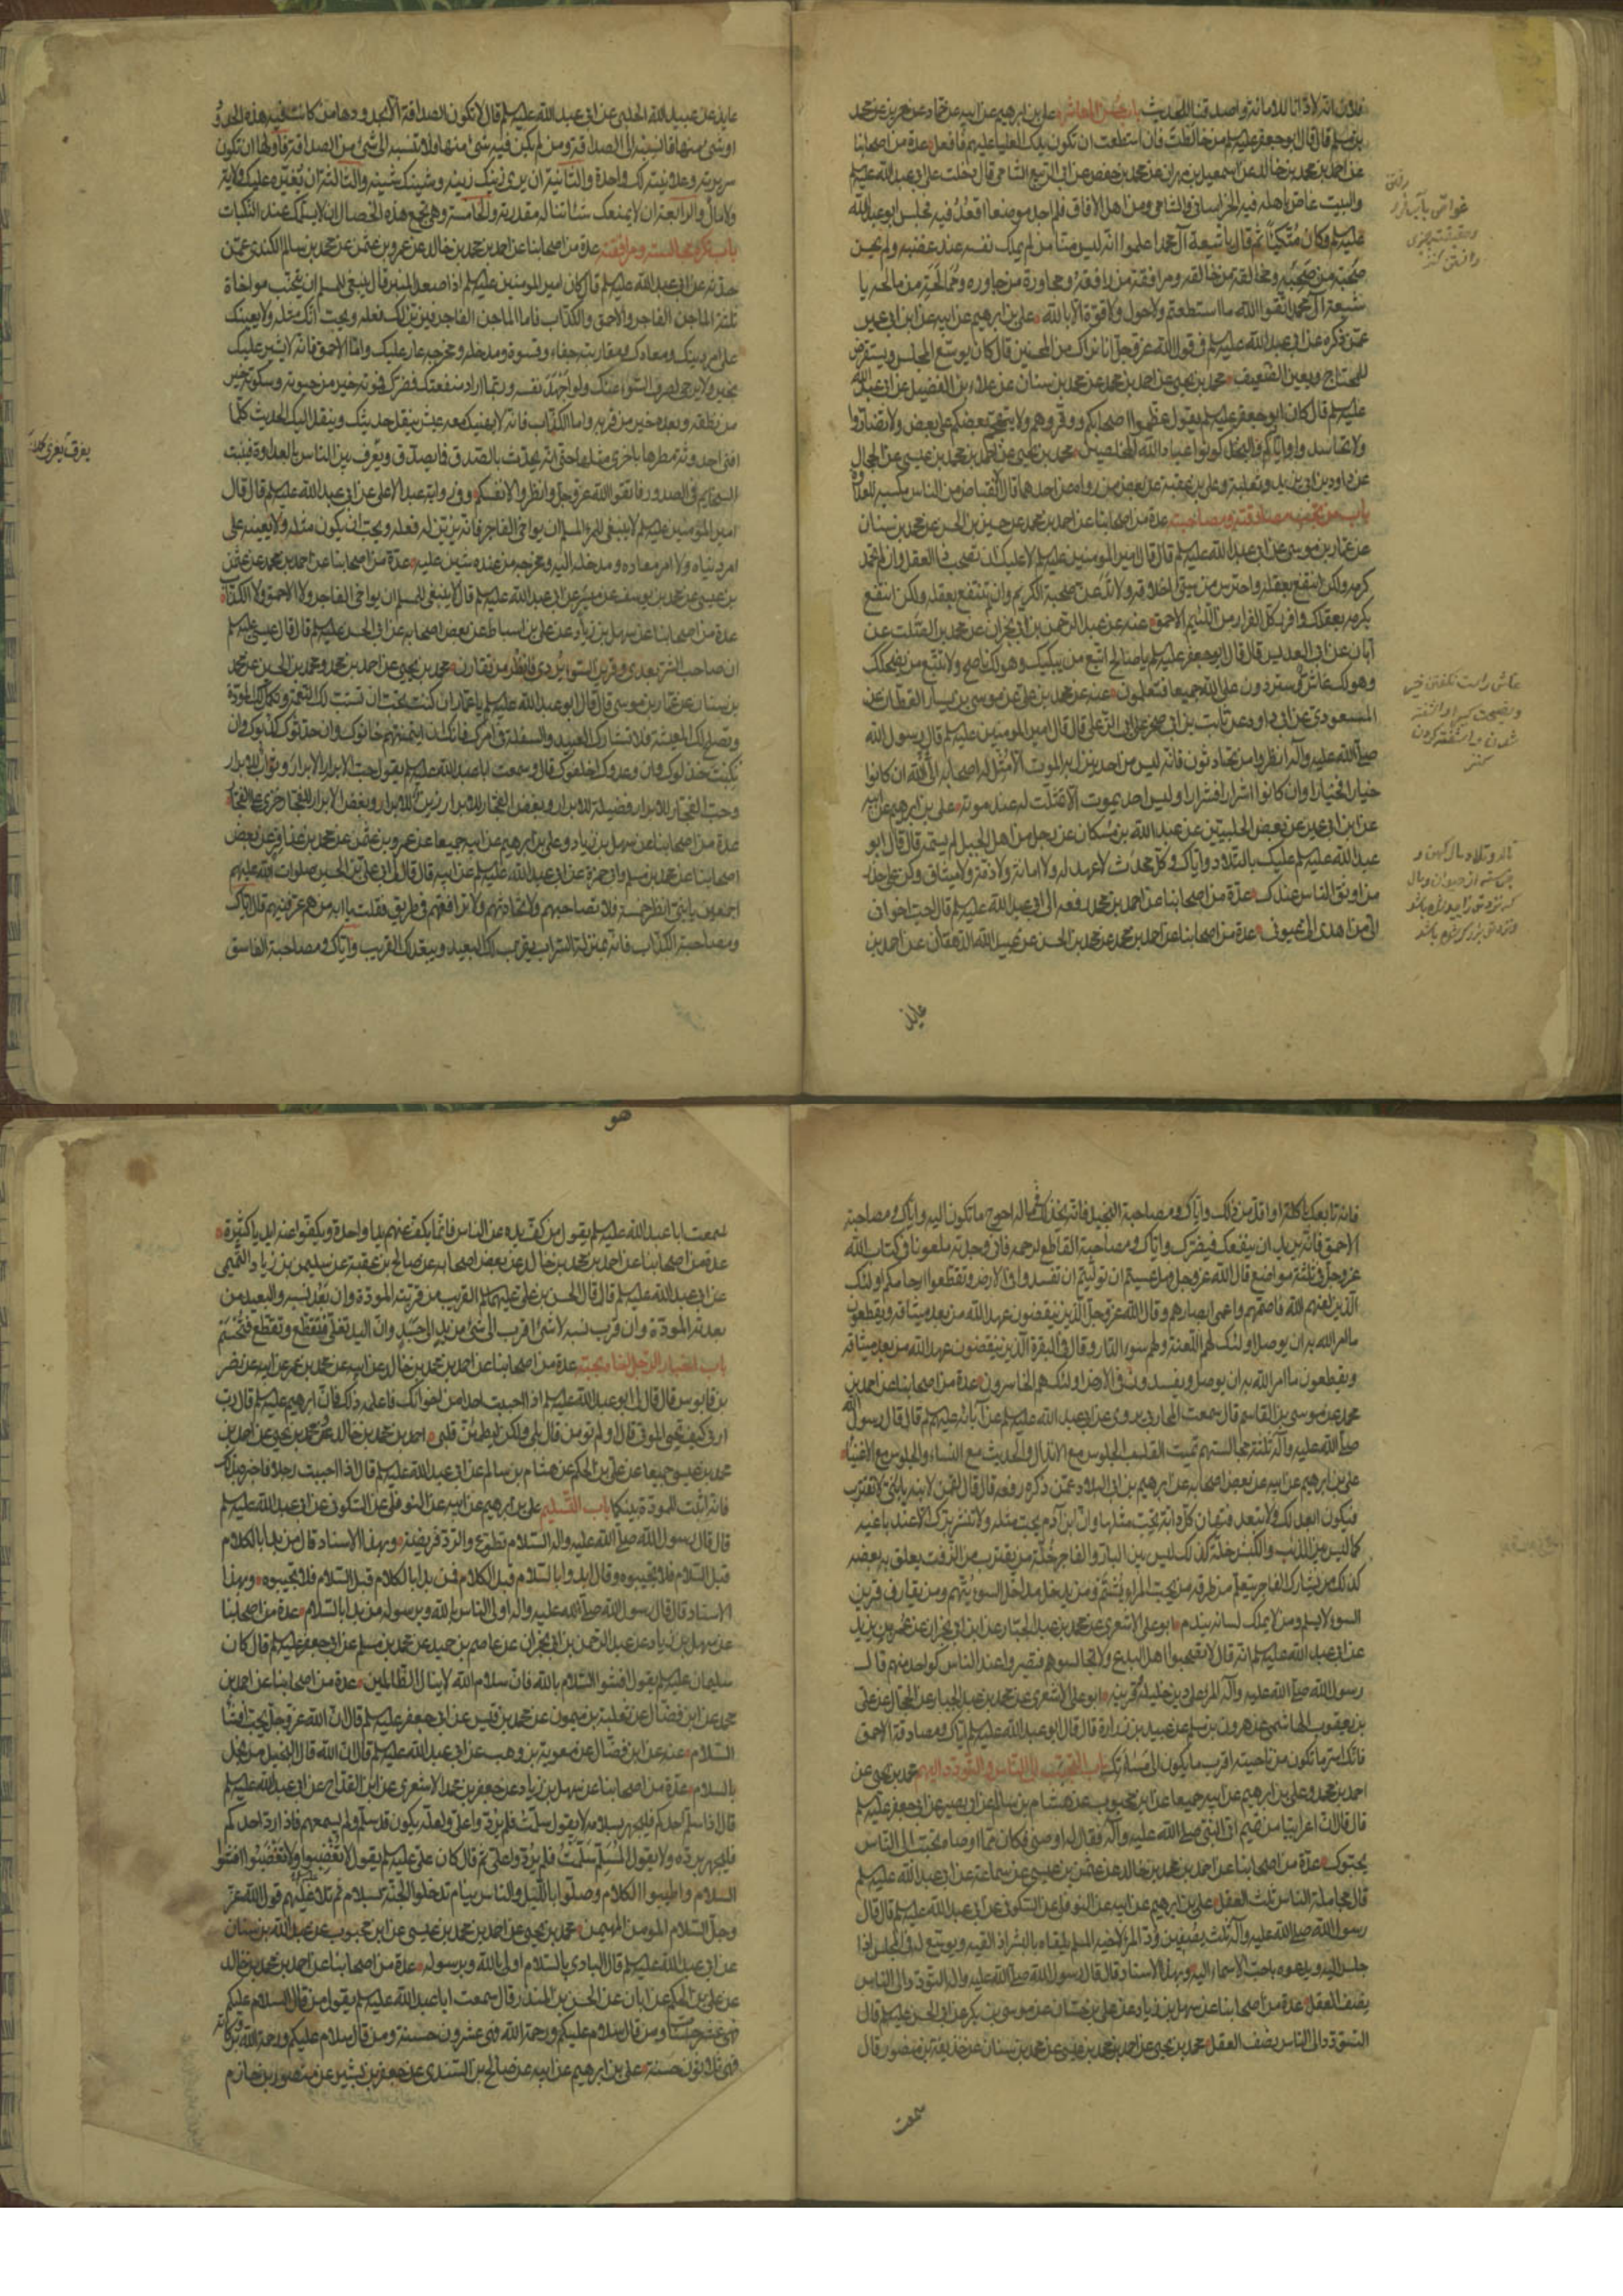 فلان انه لادّانا للامانة واصدقنا للحديث باب حسن المعاشرة علي بن ابرهيم عن ابيه عن حماد عن حريز عن محمد
بن مسلم قال قال ابو جعفر عليه السلم من خالطت فان استطعت ان تكون يدك العليا عليهم فافعل عدة من اصحابنا
عن احمد بن محمد بن خالد عن اسمعيل بن مهران عن محمد بن حفص عن ابي الربيع الشامي قال دخلت على ابي عبد الله عليه السلم
والبيت غاصّ باهله فيه الخراساني والشامي ومن اهل الافاق فلم اجد موضعا اقعد فيه فجلس ابو عبد الله
عليه السلم وكان متّكيا ثم قال يا شيعة آل محمد اعلموا انه ليس منّا من لم يملك نفسه عند غضبه ولم يحسن
صحبة من صحبه ومخالقة من خالقه ومرافقة من رافقه ومجاورة من جاوره وممالحة من مالحه يا
شيعة آل محمد اتقوا الله ما استطعتم ولا حول ولا قوة الا بالله علي بن ابرهيم عن ابيه عن ابن ابي عمير
عمّن ذكره عن ابي عبد الله عليه السلم في قول الله عز وجل انا نراك من المحسنين قال كان يوسّع المجلس ويستقرض
للمحتاج ويعين الضعيف محمد بن يحيى عن احمد بن محمد عن محمد بن سنان عن علاء بن الفضيل عن ابي عبد الله
عليه السلم قال كان ابو جعفر عليه السلم يقول عظّموا اصحابكم ووقروهم ولا يتهجّم بعضكم على بعض ولا تضارّوا
ولا تحاسدوا واياكم والبخل كونوا عباد الله المخلصين محمد بن يحيى عن احمد بن محمد بن عيسى عن الحجال
عن داود بن ابي يزيد وثعلبة وعلي بن عقبة عن بعض من رواه عن احدهما قال الانقباض من الناس مكسبة للعداوة
باب من يجب مصادقته ومصاحبته عدة من اصحابنا عن احمد بن محمد عن حسين بن الحسن عن محمد بن سنان
عن عمار بن موسى عن ابي عبد الله عليه السلم قال قال امير المؤمنين عليه السلم لا عليك ان تصحب ذا العقل وان لم تحمد
كرمه ولكن انتفع بعقله واحترس من سيئ اخلاقه ولا تدعنّ صحبة الكريم وان لم تنتفع بعقله ولكن انتفع
بكرمه بعقلك وافرر كل الفرار من اللئيم الاحمق عنه عن عبد الرحمن بن ابي نجران عن محمد بن الصلت عن
ابان عن ابي العديس قال قال ابو جعفر عليه السلم يا صالح اتبع من يبكيك وهو لك ناصح ولا تتبع من يضحكك
وهو لك غاش وستردون على الله جميعا فتعلمون عنه عن محمد بن علي عن موسى بن يسار القطان عن
المسعودي عن ابي داود عن ثابت بن ابي صخر عن ابي الزعلى قال قال امير المؤمنين عليه السلم قال رسول الله
صلى الله عليه وآله انظروا من تحادثون فانه ليس من احد ينزل به الموت الا مثّل له اصحابه الى الله ان كانوا
خيارا فخيارا وان كانوا اشرارا فشرارا وليس احد يموت الا تمثّلت له عند موته علي بن ابرهيم عن ابيه
عن ابن ابي عمير عن بعض الحلبيين عن عبد الله بن مسكان عن رجل من اهل الجبل لم يسمّه قال قال ابو
عبد الله عليه السلم عليك بالتلاد واياك وكل محدث لا عهد له ولا امانة ولا ذمة ولا ميثاق وكن على حذر
من اوثق الناس عندك عدة من اصحابنا عن احمد بن محمد رفعه الى ابي عبد الله عليه السلم قال احب اخواني
اليّ من اهدى اليّ عيوبي عدة من اصحابنا عن احمد بن محمد عن محمد بن الحسن عن عبيد الله الدهقان عن احمد بن
عايذ
عايذ عن عبيد الله الحلبي عن ابي عبد الله عليه السلم قال لا تكون الصداقة الا بحدودها فمن كانت فيه هذه الحدود
او شئ منها فانسبه الى الصداقة ومن لم يكن فيه شئ منها فلا تنسبه الى شئ من الصداقة فاولها ان تكون
سريرته وعلانيته لك واحدة والثانية ان يرى زينك زينه وشينك شينه والثالثة ان لا تغيّره عليك ولاية
ولا مال والرابعة ان لا يمنعك شيئا تناله مقدرته والخامسة وهي تجمع هذه الخصال ان لا يسلمك عند النكبات
باب من تكره مجالسته ومرافقته عدة من اصحابنا عن احمد بن محمد بن خالد عن عمرو بن عثمن عن محمد بن سالم الكندي عمّن
حدثه عن ابي عبد الله عليه السلم قال كان امير المؤمنين عليه السلم اذا صعد المنبر قال ينبغي للمسلم ان يجتنب مواخاة
ثلثة الماجن الفاجر والاحمق والكذاب فاما الماجن الفاجر فيزين لك فعله ويحب انك مثله ولا يعينك
على امر دينك ومعادك ومقاربته جفاء وقسوة ومدخله ومخرجه عار عليك واما الاحمق فانه لا يشير عليك
بخير ولا يرجى لصرف السوء عنك ولو اجهد نفسه وربما اراد منفعتك فضرك فموته خير من حيوته وسكوته خير
من نطقه وبعده خير من قربه واما الكذاب فانه لا يهنيك معه عيش ينقل حديثك وينقل اليك الحديث كلما
افنى احدوثة مطرها باخرى مثلها حتى انه يحدث بالصدق فما يصدّق ويغري بين الناس بالعداوة فينبت
السخايم في الصدور فاتقوا الله عز وجل وانظروا لانفسكم وفي رواية عبد الاعلى عن ابي عبد الله عليه السلم قال قال
امير المؤمنين عليه السلم لا ينبغي للمرء المسلم ان يواخي الفاجر فانه يزين له فعله ويحب ان يكون مثله ولا يعينه على
امر دنياه ولا امر معاده ومدخله اليه ومخرجه من عنده شين عليه عدة من اصحابنا عن احمد بن محمد عن عثمن
بن عيسى عن محمد بن يوسف عن ميسر عن ابي عبد الله عليه السلم قال لا ينبغي للمسلم ان يواخي الفاجر ولا الاحمق ولا الكذاب
عدة من اصحابنا عن سهل بن زياد عن علي بن اسباط عن بعض اصحابه عن ابي الحسن عليه السلم قال قال عيسى عليه السلم
ان صاحب الشر يعدي وقرين السوء يردي فانظر من تقارن محمد بن يحيى عن احمد بن محمد ومحمد بن الحسين عن محمد
بن سنان عن عمار بن موسى قال قال ابو عبد الله عليه السلم يا عمار ان كنت تحب ان تستتب لك النعمة وتكمل لك المودة
وتصلح لك المعيشة فلا تشارك العبيد والسفلة في امرك فانك ان ائتمنتهم خانوك وان حدثوك كذبوك وان
نكبت خذلوك وان وعدوك اخلفوك قال وسمعت ابا عبد الله عليه السلم يقول حب الابرار للابرار ثواب للابرار
وحب الفجار للابرار فضيلة للابرار وبغض الفجار للابرار زين للابرار وبغض الابرار للفجار خزي على الفجار
عدة من اصحابنا عن سهل بن زياد وعلي بن ابرهيم عن ابيه جميعا عن عمرو بن عثمن عن محمد بن عذافر عن بعض
اصحابنا عن محمد بن مسلم وابي حمزة عن ابي عبد الله عليه السلم عن ابيه قال قال لي ابي علي بن الحسين صلوات الله عليهم
اجمعين يا بني انظر خمسة فلا تصاحبهم ولا تحادثهم ولا ترافقهم في طريق فقلت يا ابه من هم عرفنيهم قال اياك
ومصاحبة الكذاب فانه بمنزلة السراب يقرب لك البعيد ويبعد لك القريب واياك ومصاحبة الفاسق
فانه بايعك باكلة او اقل من ذلك واياك ومصاحبة البخيل فانه يخذلك في ماله احوج ما تكون اليه واياك ومصاحبة
الاحمق فانه يريد ان ينفعك فيضرك واياك ومصاحبة القاطع لرحمه فاني وجدته ملعونا في كتاب الله
عز وجل في ثلثة مواضع قال الله عز وجل فهل عسيتم ان توليتم ان تفسدوا في الارض وتقطعوا ارحامكم اولئك
الذين لعنهم الله فاصمهم واعمى ابصارهم وقال الله عز وجل الذين ينقضون عهد الله من بعد ميثاقه ويقطعون
ما امر الله به ان يوصل اولئك لهم اللعنة ولهم سوء الدار وقال في البقرة الذين ينقضون عهد الله من بعد ميثاقه
ويقطعون ما امر الله به ان يوصل ويفسدون في الارض اولئك هم الخاسرون عدة من اصحابنا عن احمد بن
محمد عن موسى بن القاسم قال سمعت المحاربي يروي عن ابي عبد الله عليه السلم عن آبائه عليهم السلم قال قال رسول الله
صلى الله عليه وآله ثلثة مجالستهم تميت القلب الجلوس مع الانذال والحديث مع النساء والجلوس مع الاغنياء
علي بن ابرهيم عن ابيه عن بعض اصحابه عن ابرهيم بن ابي البلاد عمّن ذكره رفعه قال قال لقمن لابنه يا بني لا تقترب
فيكون ابعد لك ولا تبعد فتهان كل دابة تحب مثلها وان ابن آدم يحب مثله ولا تنشر بزك الا عند باغيه
كما ليس بين الذئب والكبش خلة كذلك ليس بين البار والفاجر خلة من يقترب من الزفت يعلق به بعضه
كذلك من يشارك الفاجر يتعلم من طرقه من يحب المراء يشتم ومن يدخل مداخل السوء يتهم ومن يقارن قرين
السوء لا يسلم ومن لا يملك لسانه يندم ابو علي الاشعري عن محمد بن عبد الجبار عن ابن ابي نجران عن عمر بن يزيد
عن ابي عبد الله عليه السلم انه قال لا تصحبوا اهل البدع ولا تجالسوهم فتصيروا عند الناس كواحد منهم قال
رسول الله صلى الله عليه وآله المرء على دين خليله وقرينه ابو علي الاشعري عن محمد بن عبد الجبار عن الحجال عن علي
بن يعقوب الهاشمي عن هرون بن مسلم عن عبيد بن زرارة قال قال ابو عبد الله عليه السلم اياك ومصادقة الاحمق
فانك اسر ما تكون من ناحيته اقرب ما يكون الى مساءتك باب التحبب الى الناس والتودد اليهم محمد بن يحيى عن
احمد بن محمد وعلي بن ابرهيم عن ابيه جميعا عن ابن محبوب عن هشام بن سالم عن ابي بصير عن ابي جعفر عليه السلم
قال قال ان اعرابيا من تميم اتى النبي صلى الله عليه وآله فقال له اوصني فكان مما اوصاه تحبب الى الناس
يحبوك عدة من اصحابنا عن احمد بن محمد بن خالد عن عثمن بن عيسى عن سماعة عن ابي عبد الله عليه السلم
قال مجاملة الناس ثلث العقل علي بن ابرهيم عن ابيه عن النوفلي عن السكوني عن ابي عبد الله عليه السلم قال قال
رسول الله صلى الله عليه وآله ثلث يصفين ود المرء لاخيه المسلم يلقاه بالبشر اذا لقيه ويوسع له في المجلس اذا
جلس اليه ويدعوه باحب الاسماء اليه وبهذا الاسناد قال قال رسول الله صلى الله عليه واله التودد الى الناس
نصف العقل عدة من اصحابنا عن سهل بن زياد عن علي بن حسان عن موسى بن بكر عن ابي الحسن عليه السلم قال
التودد الى الناس نصف العقل محمد بن يحيى عن احمد بن محمد بن عيسى عن محمد بن سنان عن حذيفة بن منصور قال
سمعت
هو
سمعت ابا عبد الله عليه السلم يقول من كف يده عن الناس فانما يكف عنهم يدا واحدة ويكفوا عنه ايديا كثيرة
عدة من اصحابنا عن احمد بن محمد بن خالد عن بعض اصحابه عن صالح بن عقبة عن سليمن بن زياد التميمي
عن ابي عبد الله عليه السلم قال قال الحسن بن علي عليهما السلم القريب من قربته المودة وان بعد نسبه والبعيد من
بعدته المودة وان قرب نسبه لا شئ اقرب الى شئ من يد الى جسد وان اليد تغل فتقطع وتقطع فتحسم
باب اخبار الرجل اخاه بحبه عدة من اصحابنا عن احمد بن محمد بن خالد عن ابيه عن محمد بن عمر عن ابيه عن نصر
بن قابوس قال قال لي ابو عبد الله عليه السلم اذا احببت احدا من اخوانك فاعلمه ذلك فان ابرهيم عليه السلم قال رب
ارني كيف تحيي الموتى قال اولم تؤمن قال بلى ولكن ليطمئن قلبي احمد بن محمد بن خالد ومحمد بن يحيى عن احمد بن
محمد بن عيسى جميعا عن علي بن الحكم عن هشام بن سالم عن ابي عبد الله عليه السلم قال اذا احببت رجلا فاخبره بذلك
فانه اثبت للمودة بينكما باب التسليم علي بن ابرهيم عن ابيه عن النوفلي عن السكوني عن ابي عبد الله عليه السلم
قال قال رسول الله صلى الله عليه واله السلام تطوع والرد فريضة وبهذا الاسناد قال من بدا بالكلام
قبل السلام فلا تجيبوه وقال ابدوا بالسلام قبل الكلام فمن بدا بالكلام قبل السلام فلا تجيبوه وبهذا
الاسناد قال قال رسول الله صلى الله عليه واله اولى الناس بالله وبرسوله من بدا بالسلام عدة من اصحابنا
عن سهل بن زياد عن عبد الرحمن بن ابي نجران عن عاصم بن حميد عن محمد بن مسلم عن ابي جعفر عليه السلم قال كان
سلمان عليه السلم يقول افشوا السلام بالله فان سلام الله لا ينال الظالمين عدة من اصحابنا عن احمد بن
محمد عن ابن فضال عن ثعلبة بن ميمون عن محمد بن قيس عن ابي جعفر عليه السلم قال ان الله عز وجل يحب افشاء
السلام عنه عن ابن فضال عن معوية بن وهب عن ابي عبد الله عليه السلم قال ان الله قال البخيل من بخل
بالسلام عدة من اصحابنا عن سهل بن زياد عن جعفر بن محمد الاشعري عن ابن القداح عن ابي عبد الله عليه السلم
قال اذا سلم احدكم فليجهر بسلامه لا يقول سلمت فلم يردوا علي ولعله يكون قد سلم ولم يسمعهم فاذا رد احدكم
فليجهر برده ولا يقول المسلم سلمت فلم يردوا علي ثم قال كان علي عليه السلم يقول لا تغضبوا ولا تغضبوا افشوا
السلام واطيبوا الكلام وصلوا بالليل والناس نيام تدخلوا الجنة بسلام ثم تلا عليهم قول الله عز
وجل السلام المؤمن المهيمن محمد بن يحيى عن احمد بن محمد بن عيسى عن ابن محبوب عن عبد الله بن سنان
عن ابي عبد الله عليه السلم قال البادي بالسلام اولى بالله وبرسوله عدة من اصحابنا عن احمد بن محمد بن خالد
عن علي بن الحكم عن ابان عن الحسن بن المنذر قال سمعت ابا عبد الله عليه السلم يقول من قال السلام عليكم
فهي عشر حسنات ومن قال سلام عليكم ورحمة الله فهي عشرون حسنة ومن قال سلام عليكم ورحمة الله وبركاته
فهي ثلاثون حسنة علي بن ابرهيم عن ابيه عن صالح بن السندي عن جعفر بن بشير عن منصور بن حازم